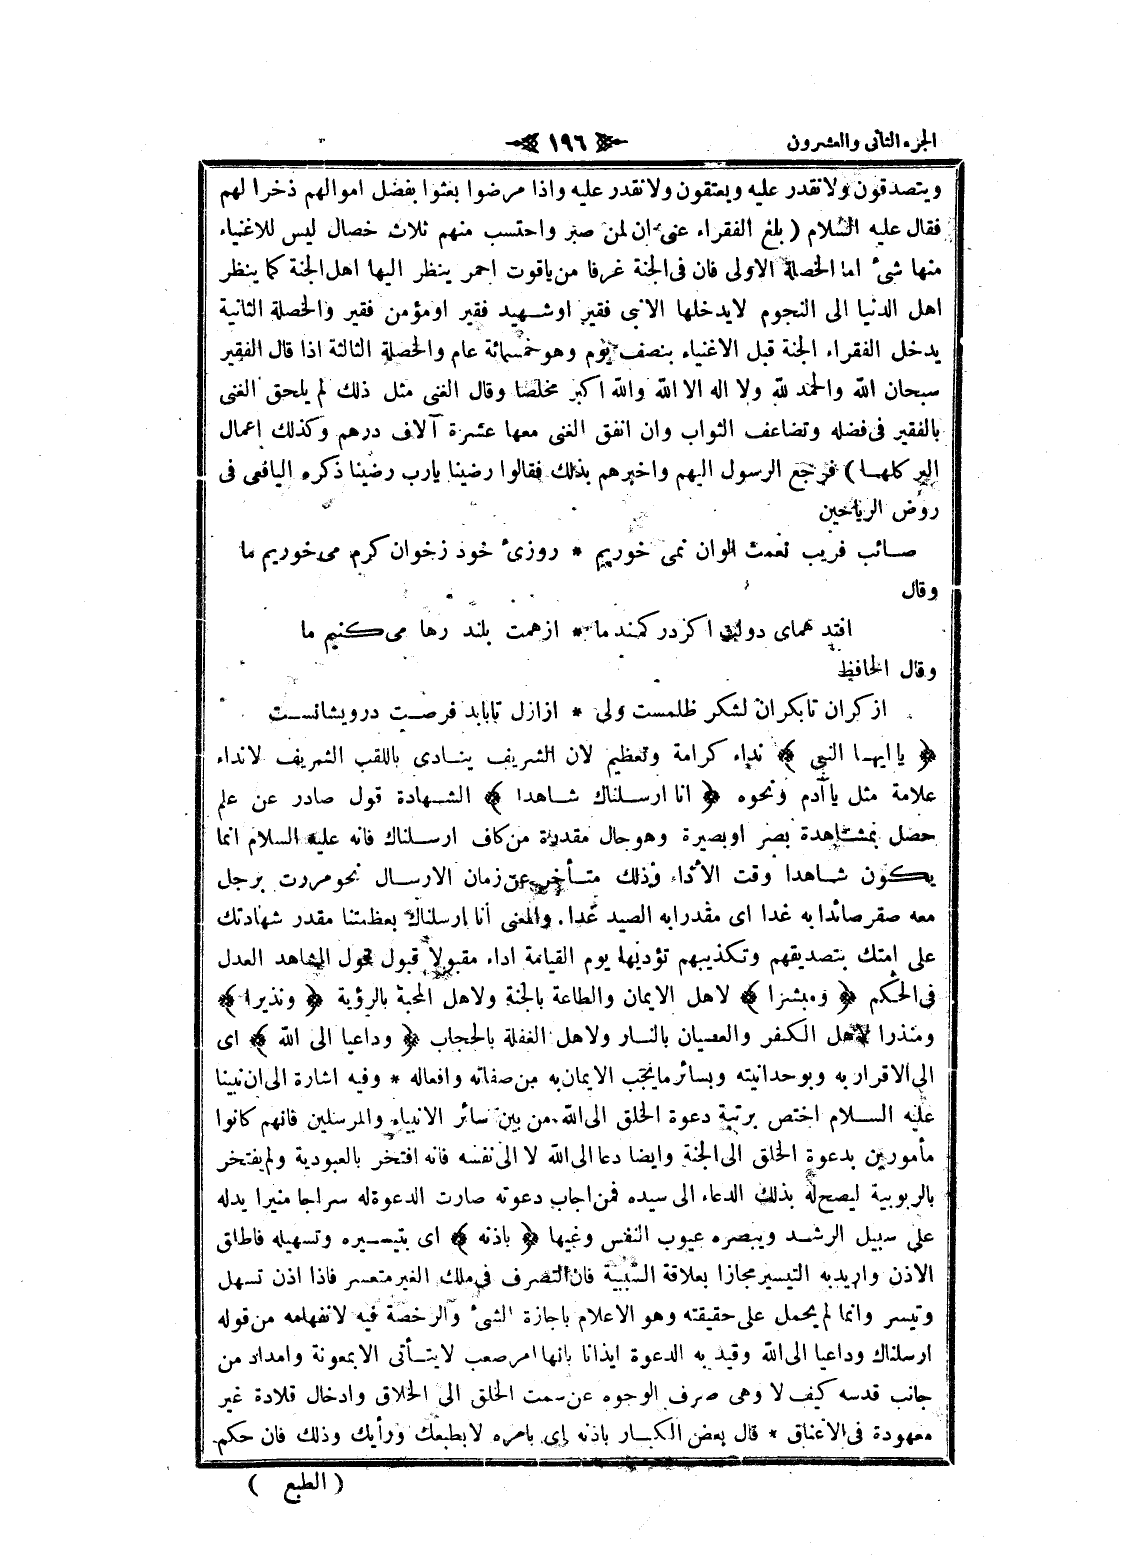 الجزء الثاني والعشرون
١٩٦
ويتصدقون ولانقدر عليه ويعتقون ولانقدر عليه واذا مرضوا بعثوا بفضل اموالهم ذخرا لهم
فقال عليه السلام ( بلغ الفقراء عنى ان لمن صبر واحتسب منهم ثلاث خصال ليس للاغنياء
منها شئ اما الخصلة الاولى فان فى الجنة غرفا من ياقوت احمر ينظر اليها اهل الجنة كما ينظر
اهل الدنيا الى النجوم لايدخلها الانبى فقير اوشهيد فقير اومؤمن فقير والخصلة الثانية
يدخل الفقراء الجنة قبل الاغنياء بنصف يوم وهو خمسمائة عام والخصلة الثالثة اذا قال الفقير
سبحان الله والحمد لله ولا اله الا الله والله اكبر مخلصا وقال الغنى مثل ذلك لم يلحق الغنى
بالفقير فى فضله وتضاعف الثواب وان انفق الغنى معها عشرة آلاف درهم وكذلك اعمال
البر كلها ) فرجع الرسول اليهم واخبرهم بذلك فقالوا رضينا يارب رضينا ذكره اليافعى فى
روض الرياحين
صائب فريب نعمت الوان نمى خوريم * روزىء خود زخوان كرم مى خوريم ما
وقال
افتد هماى دولتى اكر در كمند ما * ازهمت بلند رها مى كنيم ما
وقال الحافظ
از كران تابكران لشكر ظلمست ولى * ازازل تابابد فرصت درويشانست
﴿ يا ايها النبى ﴾ نداء كرامة وتعظيم لان الشريف ينادى باللقب الشريف لانداء
علامة مثل ياآدم ونحوه ﴿ انا ارسلناك شاهدا ﴾ الشهادة قول صادر عن علم
حصل بمشاهدة بصر اوبصيرة وهو حال مقدرة من كاف ارسلناك فانه عليه السلام انما
يكون شاهدا وقت الاداء وذلك متأخر عن زمان الارسال نحو مررت برجل
معه صقر صائدا به غدا اى مقدرابه الصيد غدا. والمعنى انا ارسلناك بعظمتنا مقدر شهادتك
على امتك بتصديقهم وتكذيبهم تؤديها يوم القيامة اداء مقبولا قبول قول الشاهد العدل
فى الحكم ﴿ ومبشرا ﴾ لاهل الايمان والطاعة بالجنة ولاهل المحبة بالرؤية ﴿ ونذيرا ﴾
ومنذرا لاهل الكفر والعصيان بالنار ولاهل الغفلة بالحجاب ﴿ وداعيا الى الله ﴾ اى
الى الاقرار به وبوحدانيته وبسائر مايجب الايمان به من صفاته وافعاله * وفيه اشارة الى ان نبينا
عليه السلام اختص برتبة دعوة الخلق الى الله من بين سائر الانبياء والمرسلين فانهم كانوا
مأمورين بدعوة الخلق الى الجنة وايضا دعا الى الله لا الى نفسه فانه افتخر بالعبودية ولم يفتخر
بالربوبية ليصح له بذلك الدعاء الى سيده فمن اجاب دعوته صارت الدعوة له سراجا منيرا يدله
على سبيل الرشد ويبصره عيوب النفس وغيها ﴿ باذنه ﴾ اى بتيسيره وتسهيله فاطلق
الاذن واريد به التيسير مجازا بعلاقة السببية فان التصرف فى ملك الغير متعسر فاذا اذن تسهل
وتيسر وانما لم يحمل على حقيقته وهو الاعلام باجازة الشئ والرخصة فيه لانفهامه من قوله
ارسلناك وداعيا الى الله وقيد به الدعوة ايذانا بانها امر صعب لايتأتى الابمعونة وامداد من
جانب قدسه كيف لا وهى صرف الوجوه عن سمت الخلق الى الخلاق وادخال قلادة غير
معهودة فى الاعناق * قال بعض الكبار باذنه اى بامره لابطبعك ورأيك وذلك فان حكم
( الطبع )